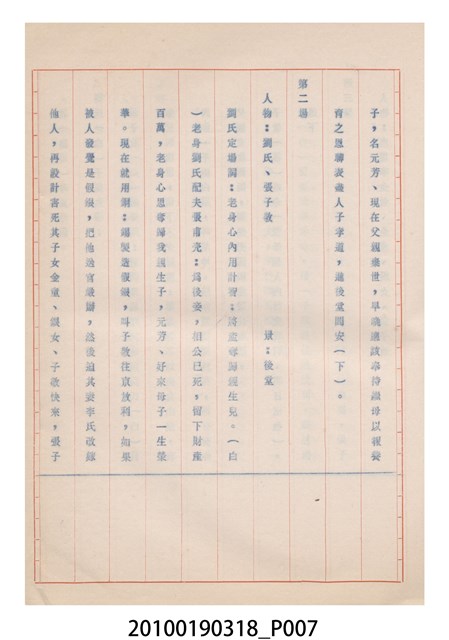 子，名元芳、現在父親棄世，早晚應該奉侍繼母以報養
育之恩聊表盡人子孝道，進後堂問安（下）。
第二場
人物：劉氏、張子敎　　景：後堂
劉氏定場詞：老身心內用計智：將產奪歸親生兒。（白
）老身劉氏配夫張甫亮：為後妻，相公已死，留下財產
百萬，老身心思奪歸我親生子，元芳、好來母子一生榮
華。現在就用謝：錫製造假銀，叫子敎往京放利，如果
被人發覺是假銀，把他送官嚴辦，然後迫其妻李氏改嫁
他人，再設計害死其子女金童、玉女、子敎快來，張子
20100190318_P007